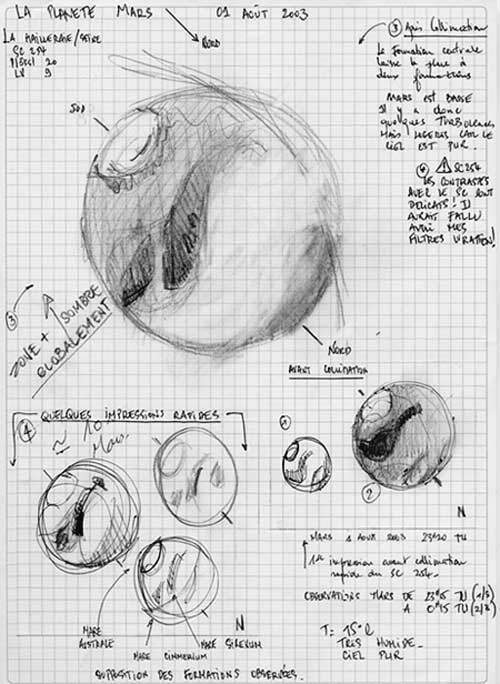 LA PLANETE MARS 01 AOÛT 2003
LA HAILLERAIE/SEINE
SC 254
LV 9
NORD
SUD
③ Après Collimation
La formation centrale
laisse la place à
deux formations
MARS est BASSE
Il y a donc
quelques TURBULENCES
MAIS LEGERES CAR LE
CIEL EST PUR.
④ ⚠ SC254
LES CONTRASTES
AVEC LE SC SONT
DELICATS! IL
AURAIT FALLU
AVOIR MES
FILTRES WRATTEN!
③
ZONE + SOMBRE
GLOBALEMENT
NORD
AVANT COLLIMATION
QUELQUES IMPRESSIONS RAPIDES
④
①
②
N
N
MARS 1 AOUT 2003 23H20 TU
1ère impression avant collimation
rapide du SC 254.
OBSERVATIONS MARS DE 23H15 TU (1/8)
A 0H15 TU (2/8)
T = 15°C
TRES HUMIDE.
CIEL PUR
MARE
AUSTRALE
MARE CIMMERIUM
MARE SIRENUM
SUPPOSITION DES FORMATIONS OBSERVÉES.